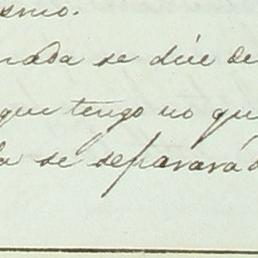 smo.
nada se dice de
que tengo no qu
la se separará